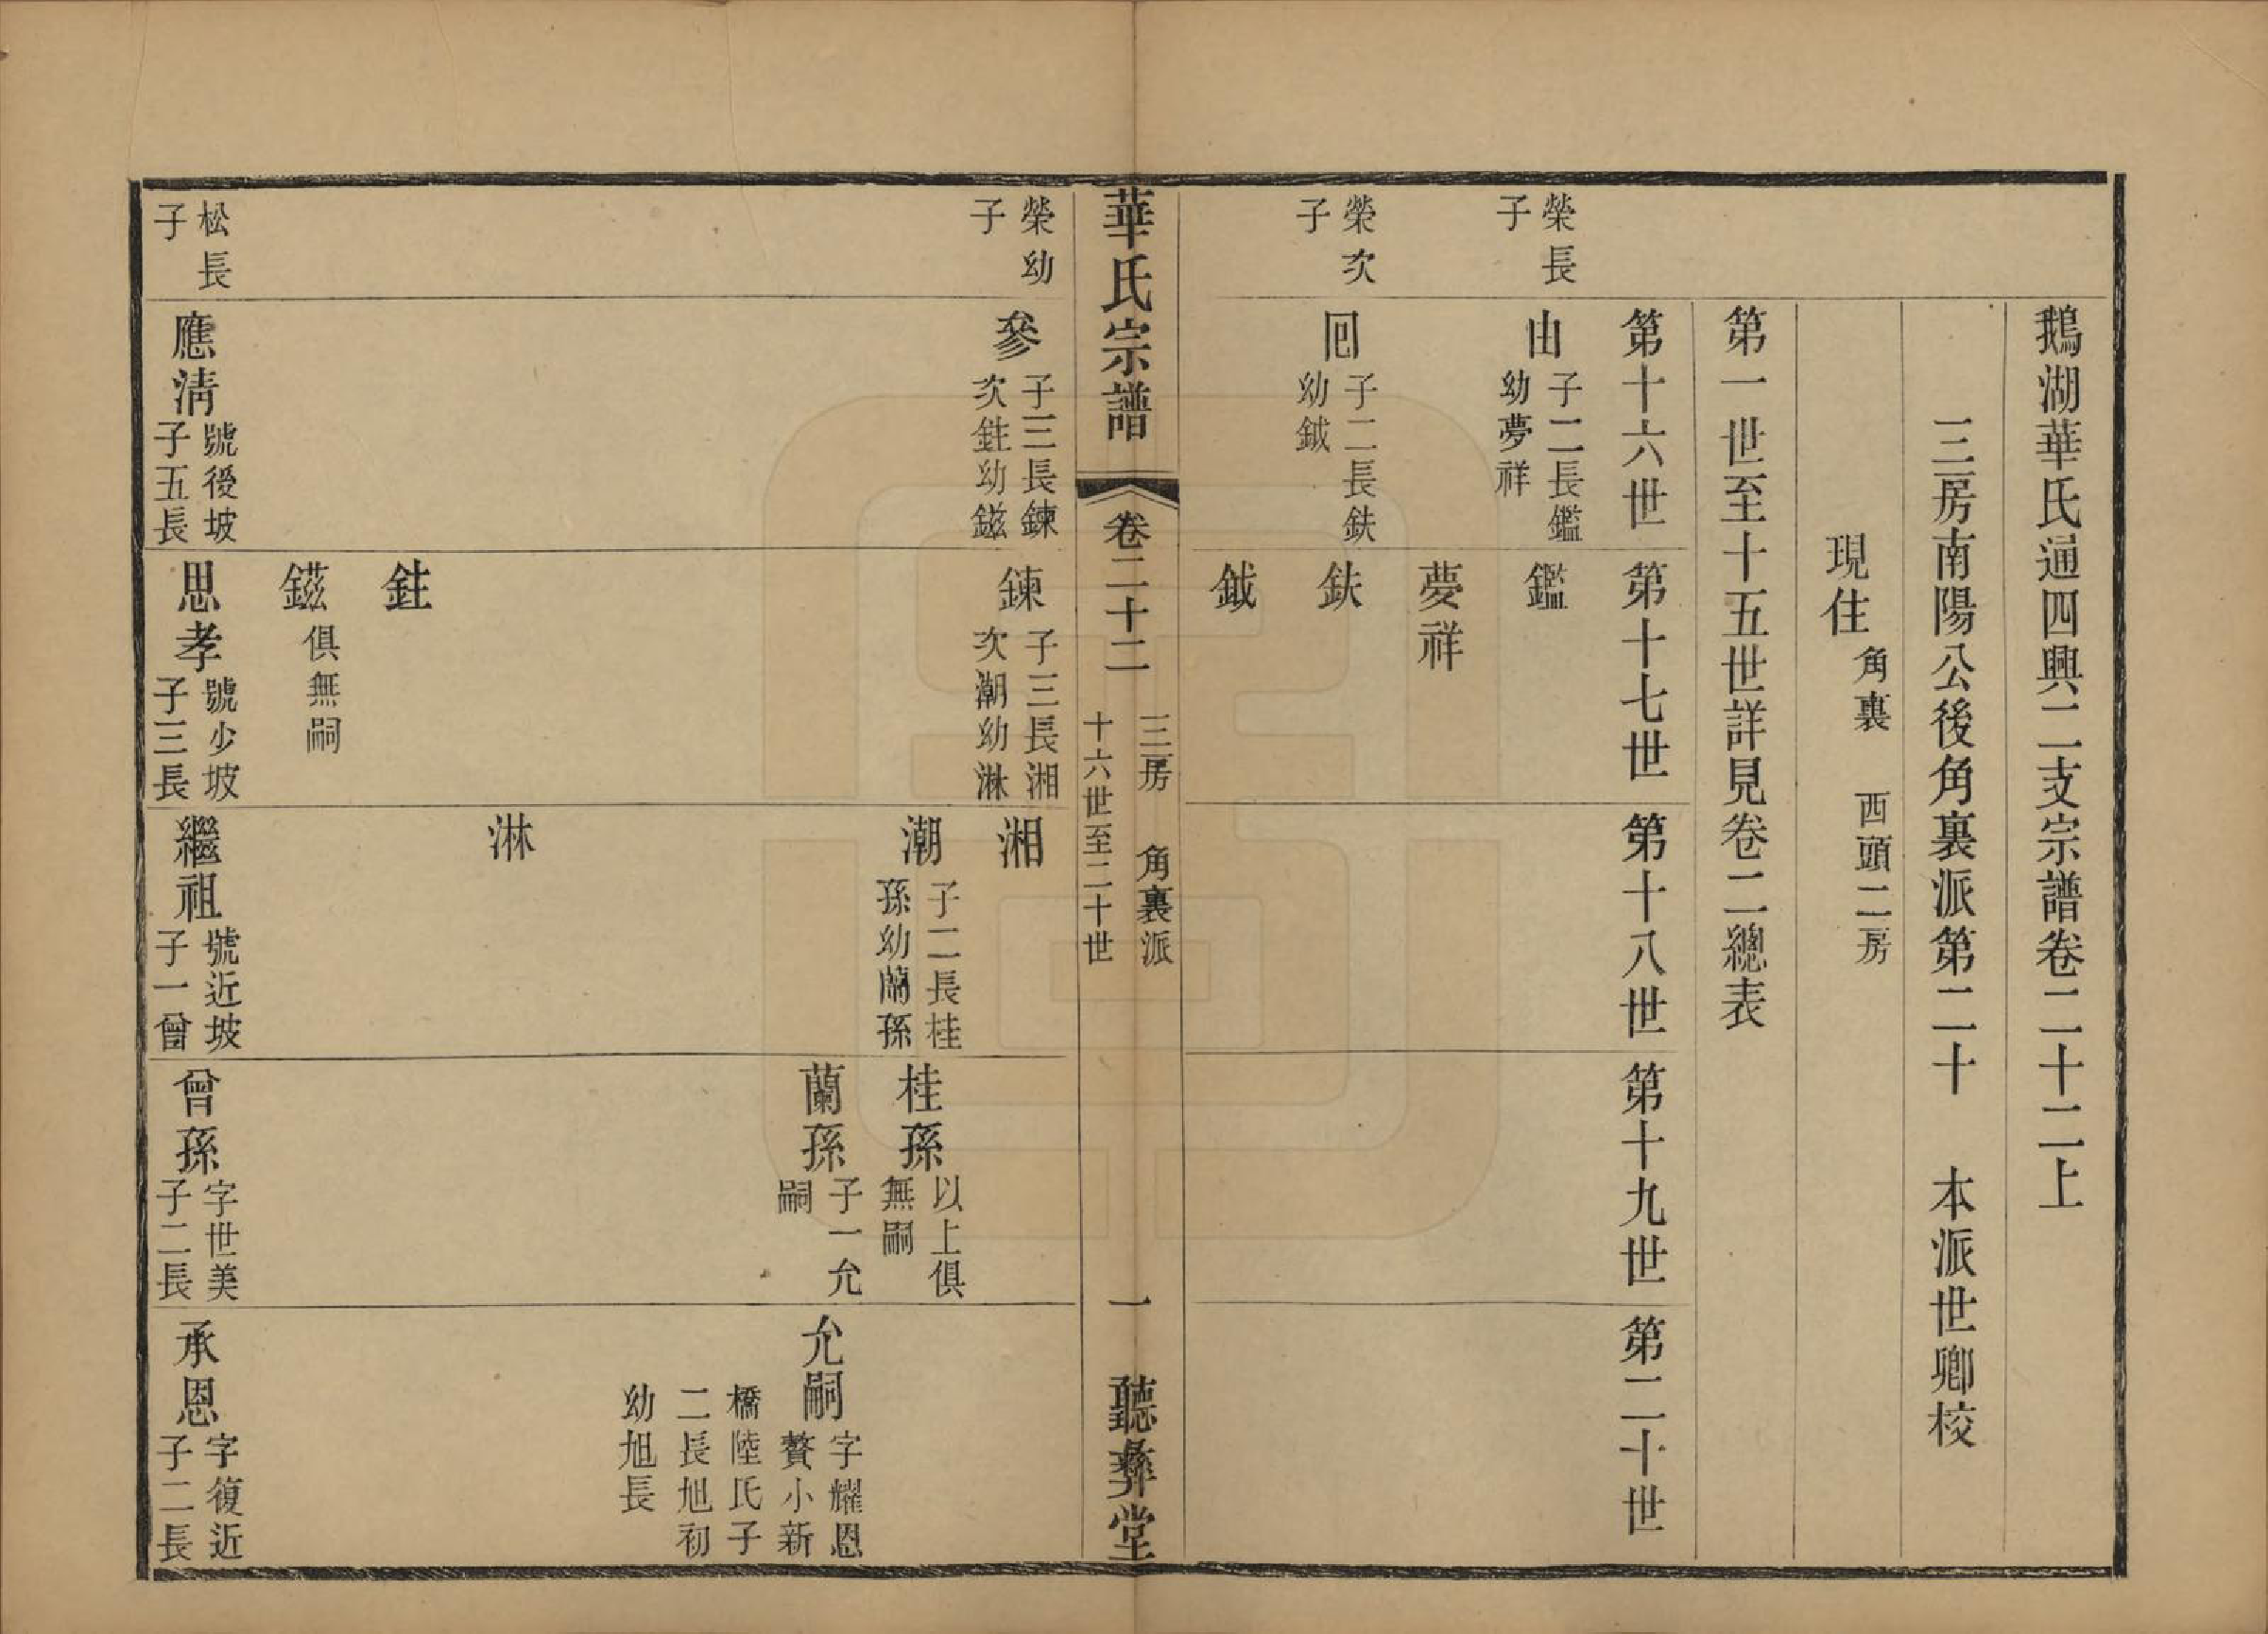 鵝湖華氏通四興二支宗譜卷二十二上
三房南陽公後角裏派第二十　本派世卿校
現住
角裏　西頭二房
第一世至十五世詳見卷二總表
第十六世
第十七世
第十八世
第十九世
第二十世
榮長
子
由
子二長鑑
幼夢祥
鑑
夢祥
榮次
子
囘
子二長鈇
幼鉞
鈇
鉞
華氏宗譜
卷二十二
三房　角裏派
十六世至二十世
一
聽彝堂
榮幼
子
參
子三長鍊
次鉒幼鎡
鍊
子三長湘
次潮幼淋
湘
潮
子二長桂
孫幼蘭孫
桂孫
以上俱
無嗣
蘭孫
子一允
嗣
允嗣
字耀恩
贅小新
橋陸氏子
二長旭初
幼旭長
淋
鉒
鎡
俱無嗣
松長
子
應淸
號後坡
子五長
思孝
號少坡
子三長
繼祖
號近坡
子一曾
曾孫
字世美
子二長
承恩
字復近
子二長